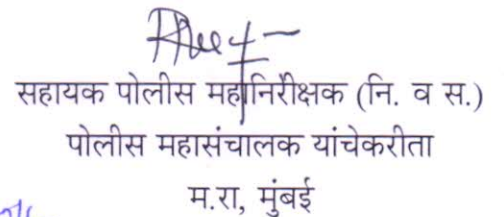 सहायक पोलीस महानिरीक्षक (नि. व स.)
पोलीस महासंचालक यांचेकरीता
म.रा, मुंबई